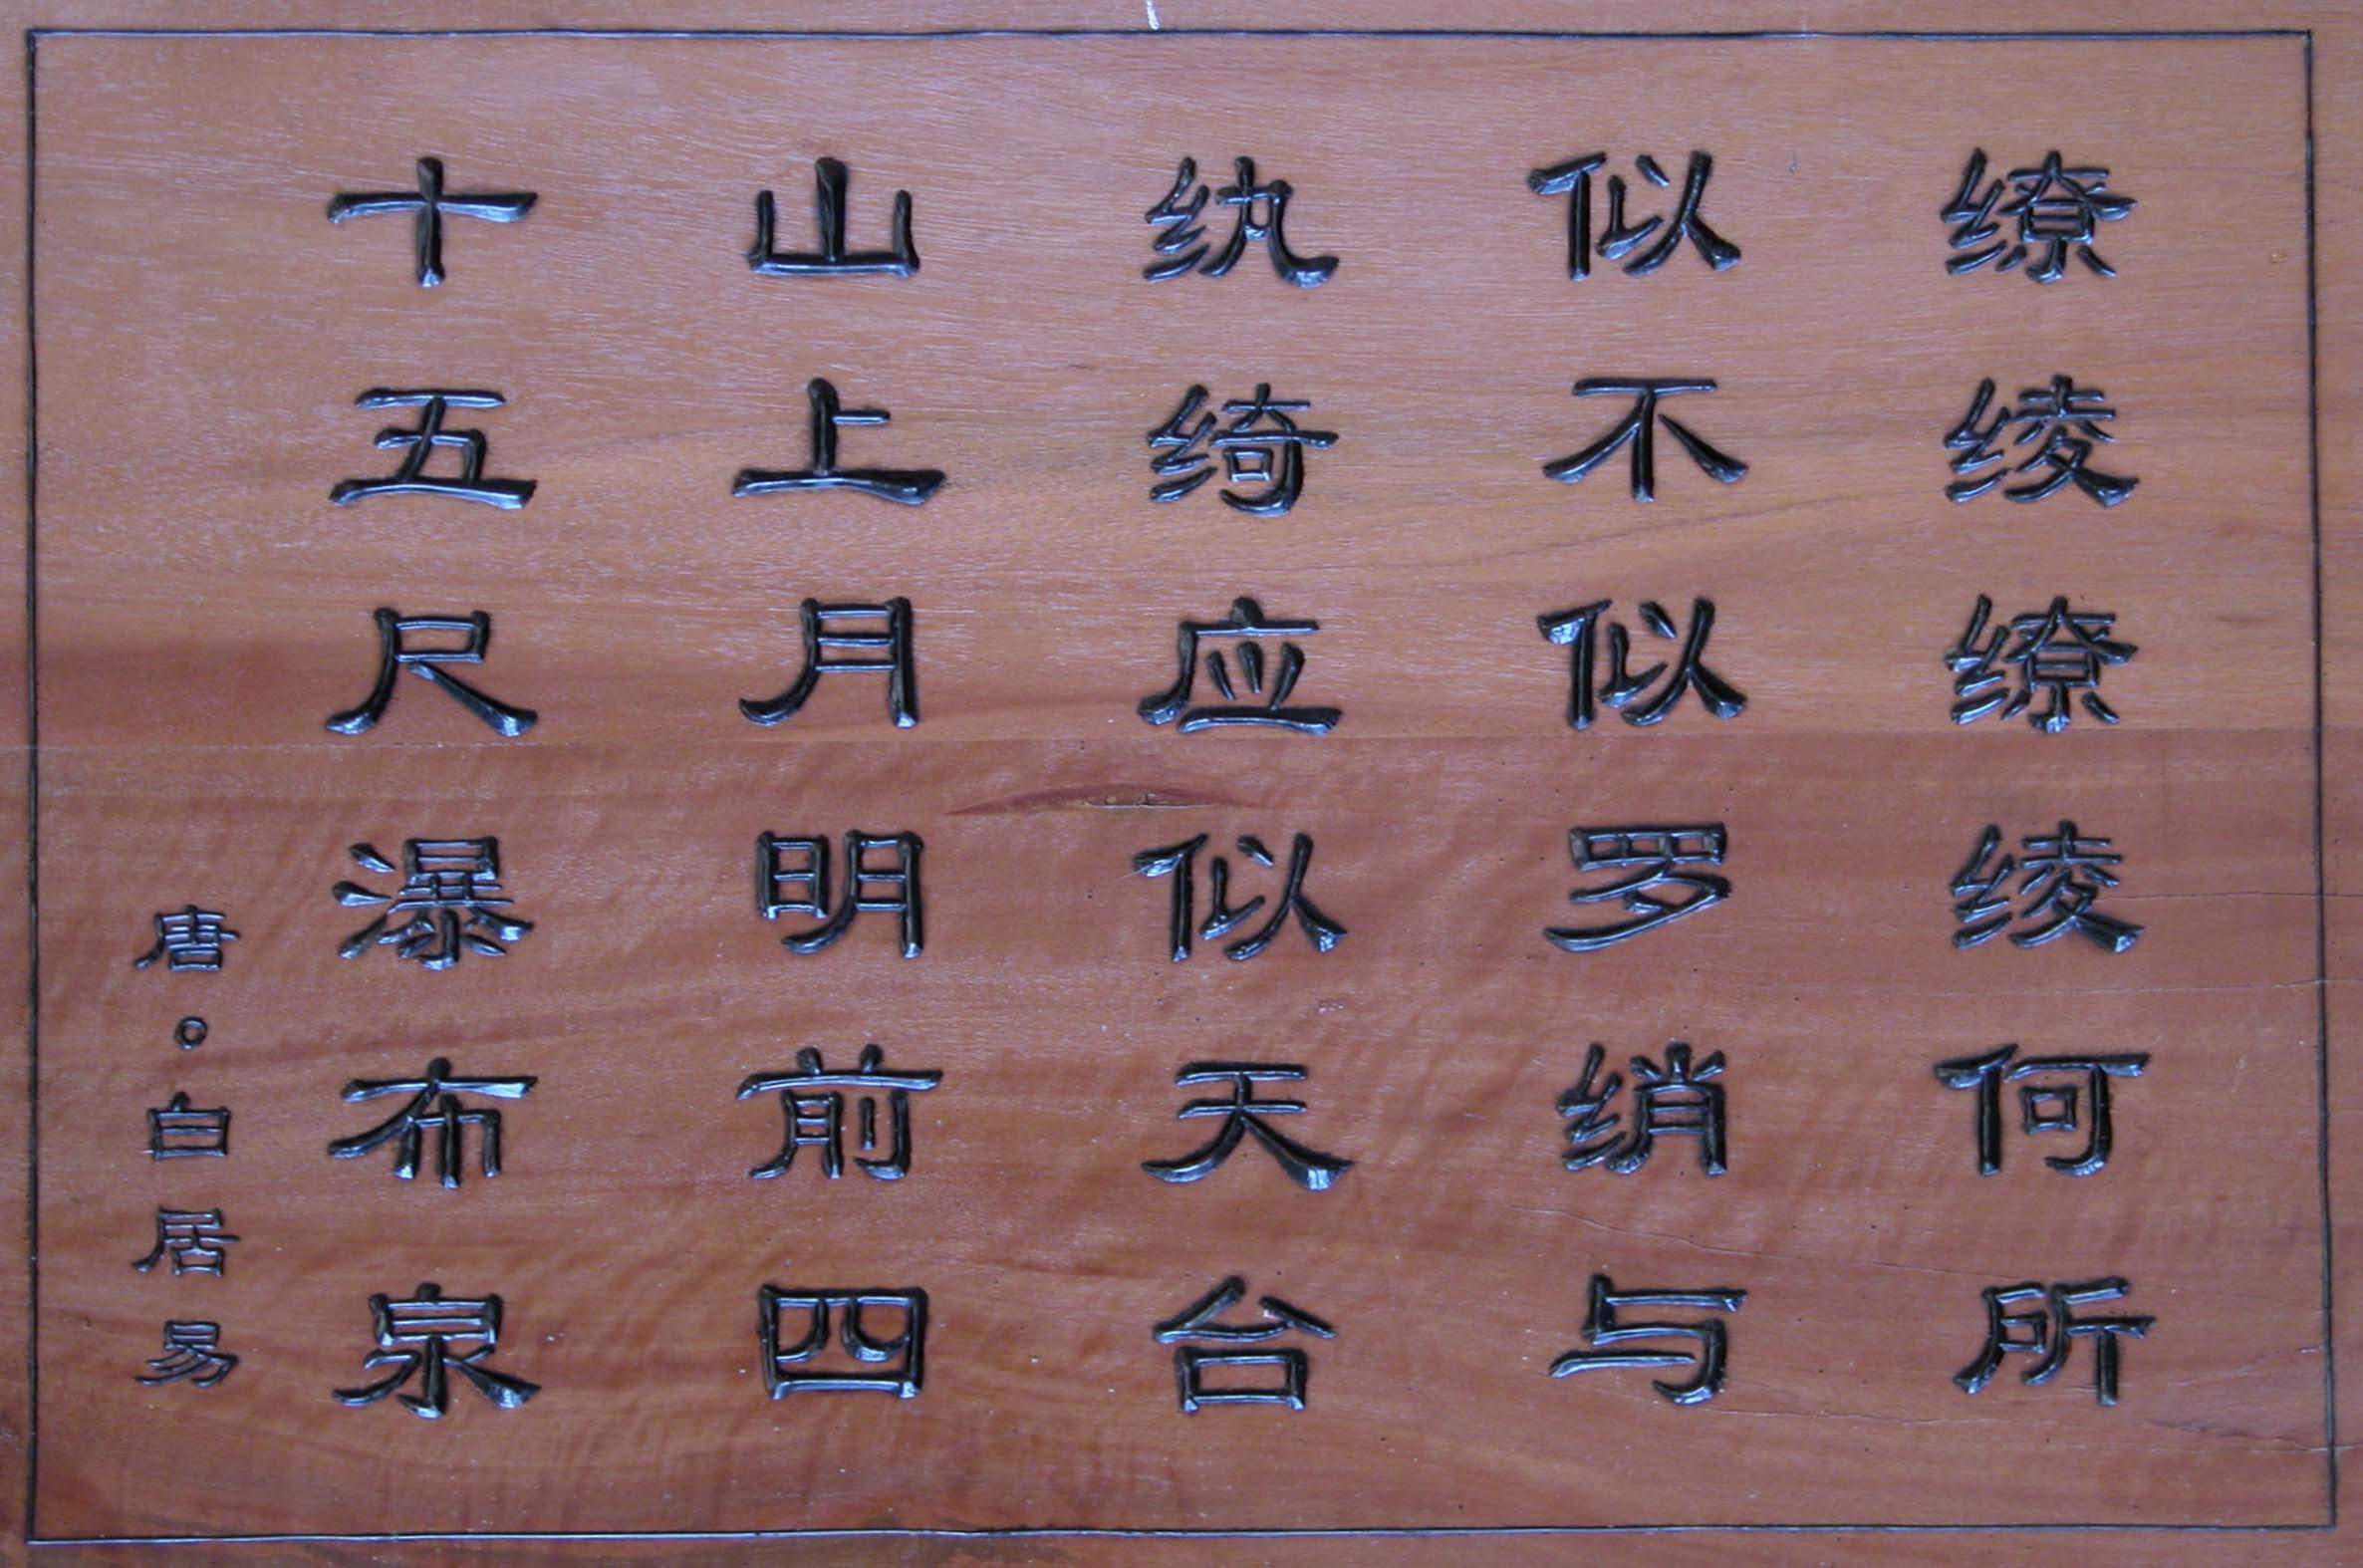 缭绫缭绫何所
似不似罗绡与
纨绮应似天台
山上月明前四
十五尺瀑布泉
唐。白居易